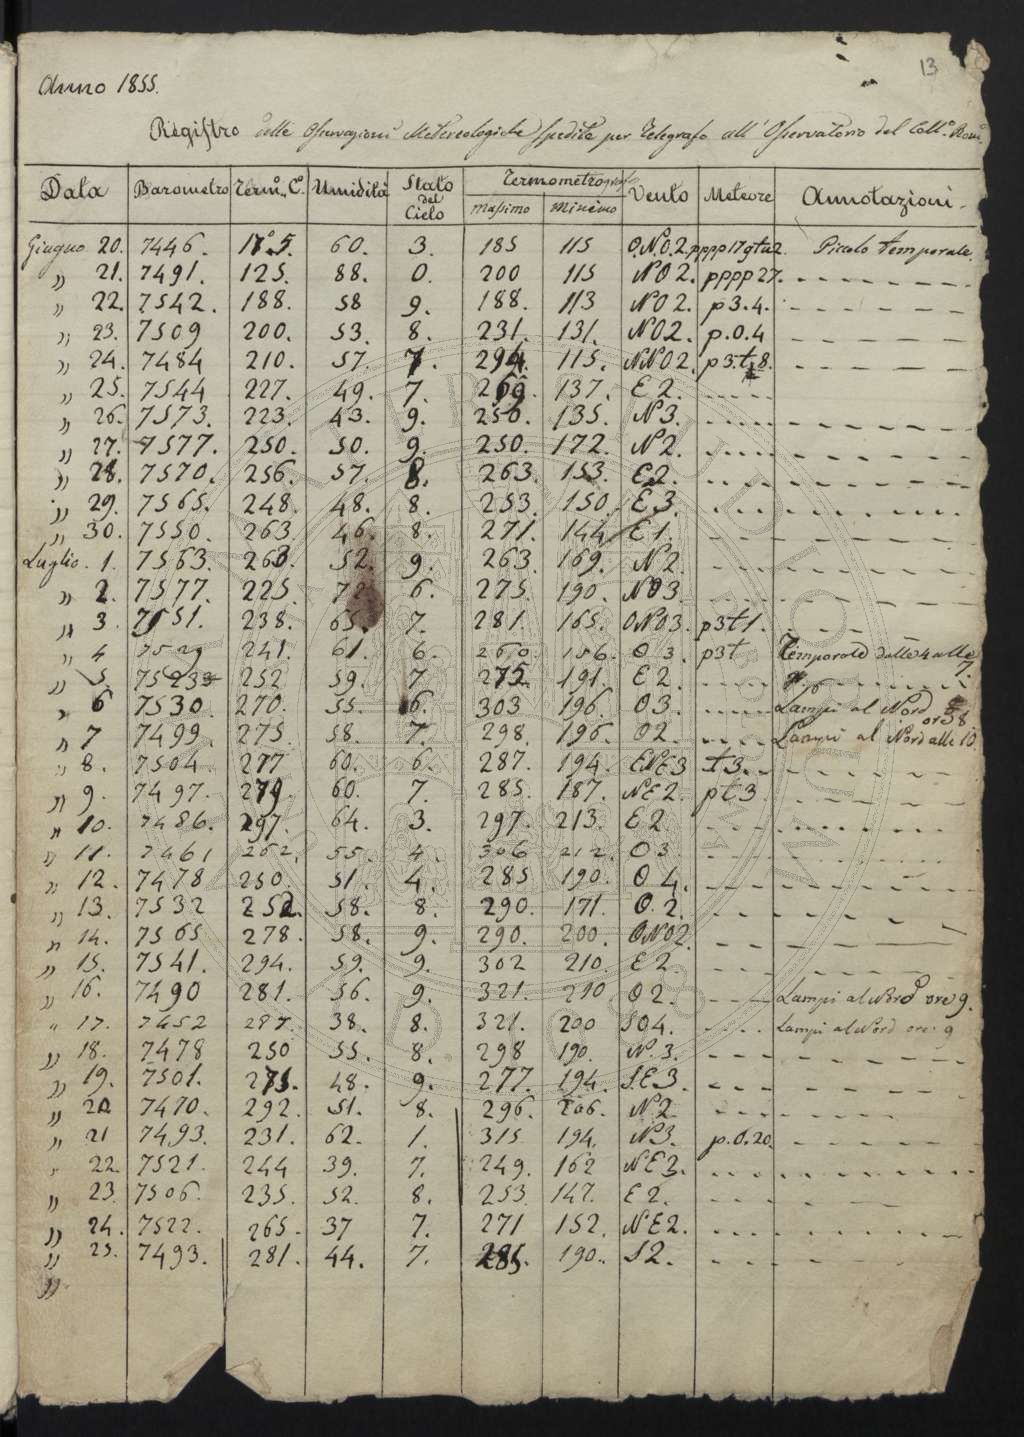 13
Anno 1855.
Registro delle Osservazioni Metereologiche spedite per Telegrafo all' Osservatorio del Coll.o Rom.o
Data Barometro Term. C.o Umidità Stato del Cielo Termometrografo Massimo Minimo Vento Meteore Annotazioni
Giugno 20. 7446. 17°5. 60. 3. 185 115 O.NO.2. pppp17gta2. Piccolo temporale.
" 21. 7491. 125. 88. 0. 200 115 NO2. pppp27.
" 22. 7542. 188. 58 9. 188. 113 NO2. p3.4.
" 23. 7509 200. 53. 8. 231. 131. NO2. p.0.4
" 24. 7484 210. 57. 7. 294. 115. NNO2. p3.t.8.
" 25. 7544 227. 49. 7. 137. E2.
" 26. 7573. 223. 43. 9. 250. 135. N3.
" 27. 7577. 250. 50. 9. 250. 172. N2.
" 28. 7570. 256. 57. 8. 263. 153. E2.
" 29. 7565. 248. 48. 8. 253. 150. E3.
" 30. 7550. 263. 46. 8. 271. 144 E1.
Luglio. 1. 7563. 263. 52. 9. 263. 169. N2.
" 2. 7577. 225. 72 6. 275. 190. NO3.
" 3. 7551. 238. 65. 7. 281. 165. ONO3. p3t1.
" 4 7529 241. 61. 6. 260. 156. O3. p3t Temporale dalle 4 alle 7.
" 5. 7523 252 59. 7 275. 191. E2.
" 6 7530. 270. 55. 6. 303 196. O3. Lampi al Nord ore 8
" 7 7499. 275. 58. 7. 298. 196. O2. Lampi al Nord alle 10.
" 8. 7504. 277 60. 6. 287. 194. ENE3 t3.
" 9. 7497. 279. 60. 7. 285. 187. NE2. pt3
" 10. 7486. 297. 64. 3. 297. 213. E2
" 11. 7461 262. 55. 4. 306 212. O3
" 12. 7478 250 51. 4. 285 190. O4.
" 13. 7532 252. 58. 8. 290. 171. O.2.
" 14. 7565 278. 58. 9. 290. 200. ONO2.
" 15. 7541. 294. 59. 9. 302 210. E2
" 16. 7490 281. 56. 9. 321. 210 O2. Lampi al Nord ore 9.
" 17. 7452 287. 38. 8. 321. 200 SO4. Lampi al Nord ore. 9
" 18. 7478 250 55. 8. 298 190. N.3.
" 19. 7501. 275. 48. 9. 277. 194. S.E3.
" 20 7470. 292. 51. 8. 296. 206. N2
" 21 7493. 231. 62. 1. 315 194. N3. p.0.20.
" 22. 7521. 244 39. 7. 249. 162 NE3.
" 23. 7506. 235. 52. 8. 253. 147. E2.
" 24. 7522. 265. 37 7. 271 152. NE2.
" 25. 7493. 281. 44. 7. 285. 190. S2.
"